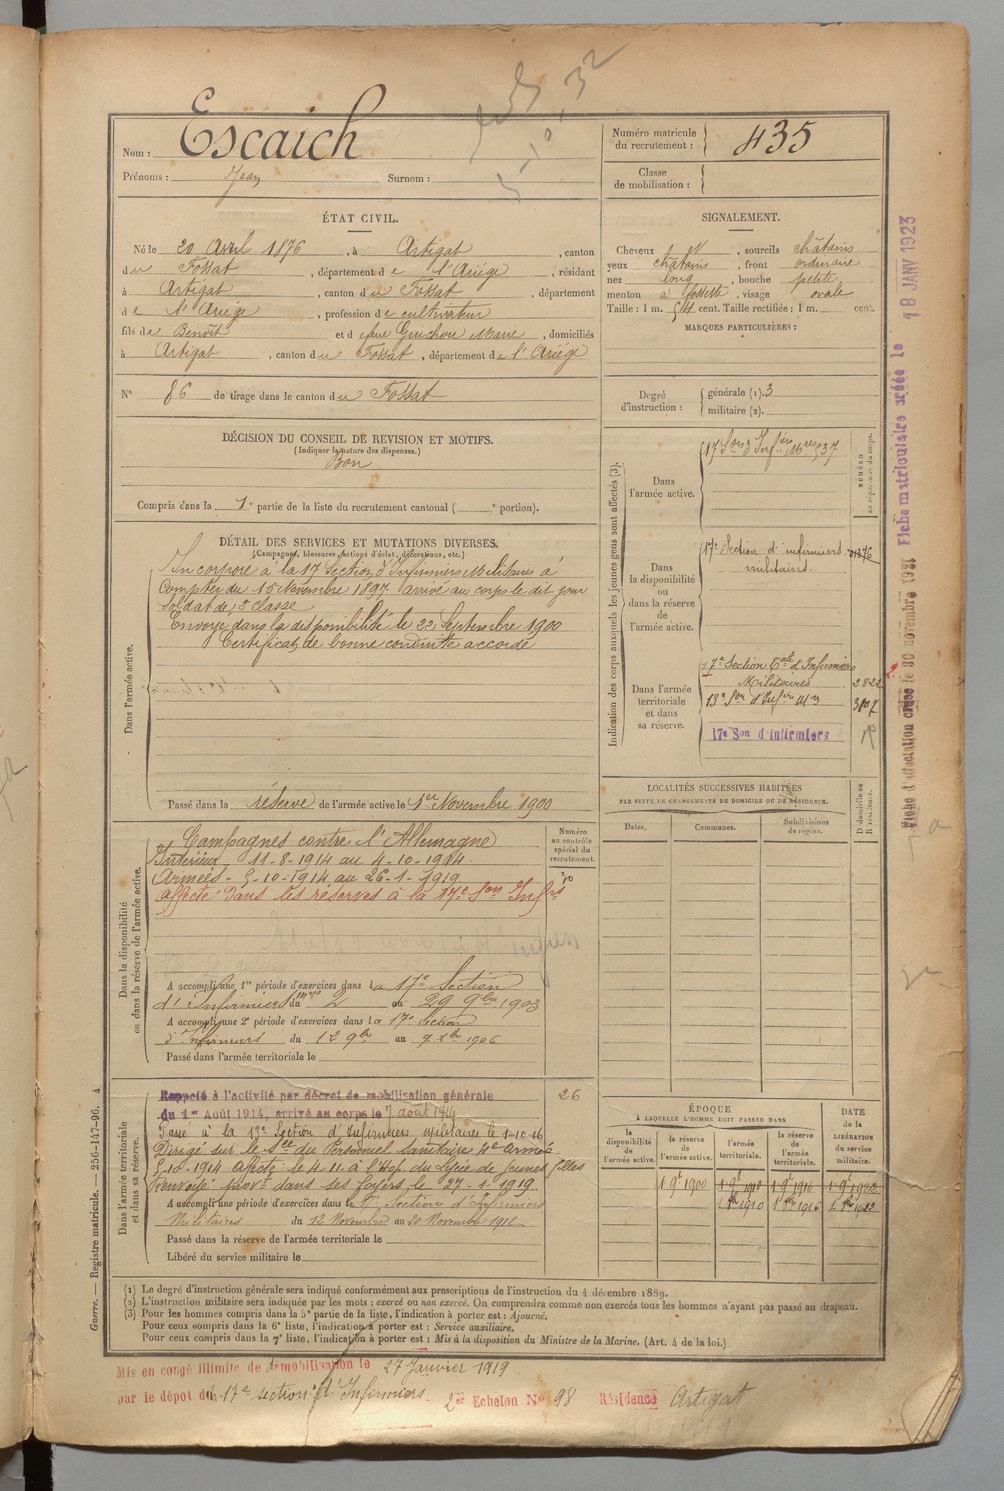 Nom : Escaich
Prénoms : Jean Surnom :
Numéro matricule du recrutement : 435
Classe de mobilisation :
ÉTAT CIVIL.
Né le 20 Avril 1876, à Artigat, canton
du Fossat, département de l'Ariège, résidant
à Artigat, canton du Fossat, département
de l'Ariège, profession de cultivateur
fils de Benoît et de feue Guichou Marie, domiciliés
à Artigat, canton du Fossat, département de l'Ariège
N° 86 de tirage dans le canton du Fossat
SIGNALEMENT.
Cheveux N, sourcils châtains
yeux châtains, front ordinaire
nez long, bouche petite
menton à fossette, visage ovale
Taille : 1 m. 54 cent. Taille rectifiée : 1 m. cent.
MARQUES PARTICULIÈRES :
Degré d'instruction :
générale (1). 3
militaire (2).
DÉCISION DU CONSEIL DE REVISION ET MOTIFS.
(Indiquer la nature des dispenses.)
Bon
Compris dans la 1e partie de la liste du recrutement cantonal ( e portion).
DÉTAIL DES SERVICES ET MUTATIONS DIVERSES.
(Campagnes, blessures, actions d'éclat, décorations, etc.)
Dans l'armée active.
Incorporé à la 17e Section d'Infirmiers Militaires à
Compter du 15 Novembre 1897 arrivé au corps le dit jour
soldat de 2e classe
Envoyé dans la disponibilité le 22 Septembre 1900
Certificat de bonne conduite accordé
Passé dans la réserve de l'armée active le 1er Novembre 1900
Dans la disponibilité ou dans la réserve de l'armée active.
Campagnes contre l'Allemagne
Intérieur 11-8-1914 au 4-10-1914
Armées - 5-10-1914 au 26-1-1919
Affecté dans les réserves à la 17e Son Infrs
A accompli une 1re période d'exercices dans la 17e Section
d'Infirmiers mres du 2 au 29 9bre 1903
A accompli une 2e période d'exercices dans la 17e Section
d'Infirmiers du 12 9bre au 9 Xbre 1906
Passé dans l'armée territoriale le
Numéro au contrôle spécial du recrutement.
Dans l'armée territoriale et dans sa réserve.
Rappelé à l'activité par décret de mobilisation générale 26
du 1er Août 1914, arrivé au corps le 7 août 1914
Passé à la 13e Section d'Infirmiers militaires le 1-10-16
Dirigé sur le Sce du Personnel Sanitaire 4e armée
5-10-1914 affecté le 4-11 à l'Hop. du Lycée de jeunes filles
Renvoyé provt dans ses foyers le 27-1-1919
A accompli une période d'exercices dans la 17e Section d'Infirmiers
Militaires du 12 Novembre au 20 Novembre 1911
Passé dans la réserve de l'armée territoriale le
Libéré du service militaire le
Indication des corps auxquels les jeunes gens sont affectés (3).
NUMÉRO au répertoire du corps.
Dans l'armée active.
17 Son d'Infiers Mres 537
Dans la disponibilité ou dans la réserve de l'armée active.
17e Section d'infirmiers militaires 01376
Dans l'armée territoriale et dans sa réserve.
17e Section Tale d'Infirmiers Militaires 2822
13e Son d'Infres Mres 3107
17e Son d'infirmiers
LOCALITÉS SUCCESSIVES HABITÉES
PAR SUITE DE CHANGEMENTS DE DOMICILE OU DE RÉSIDENCE.
Dates. Communes. Subdivisions de région. D domicile ou R résidence.
ÉPOQUE
À LAQUELLE L'HOMME DOIT PASSER DANS
DATE de la LIBÉRATION du service militaire.
la disponibilité de l'armée active. la réserve de l'armée active. l'armée territoriale. la réserve de l'armée territoriale.
1 9e 1900 1 9e 1910 1 9e 1916 1 9e 1922
1 8bre 1910 1 8bre 1916 1 8bre 1922
(1) Le degré d'instruction générale sera indiqué conformément aux prescriptions de l'instruction du 4 décembre 1889.
(2) L'instruction militaire sera indiquée par les mots : exercé ou non exercé. On comprendra comme non exercés tous les hommes n'ayant pas passé au drapeau.
(3) Pour les hommes compris dans la 5e partie de la liste, l'indication à porter est : Ajourné.
Pour ceux compris dans la 6e liste, l'indication à porter est : Service auxiliaire.
Pour ceux compris dans la 7e liste, l'indication à porter est : Mis à la disposition du Ministre de la Marine. (Art. 4 de la loi.)
Mis en congé illimité de démobilisation le 27 Janvier 1919
par le dépôt du 17e section d'Infirmiers 2er Echelon N° 98 Résidence Artigat
Guerre. — Registre matricule. — 256-147-96. 4
Fiche d'affectation créée le 30 novembre 1921 Fiche matriculaire créée le 18 JANV 1923